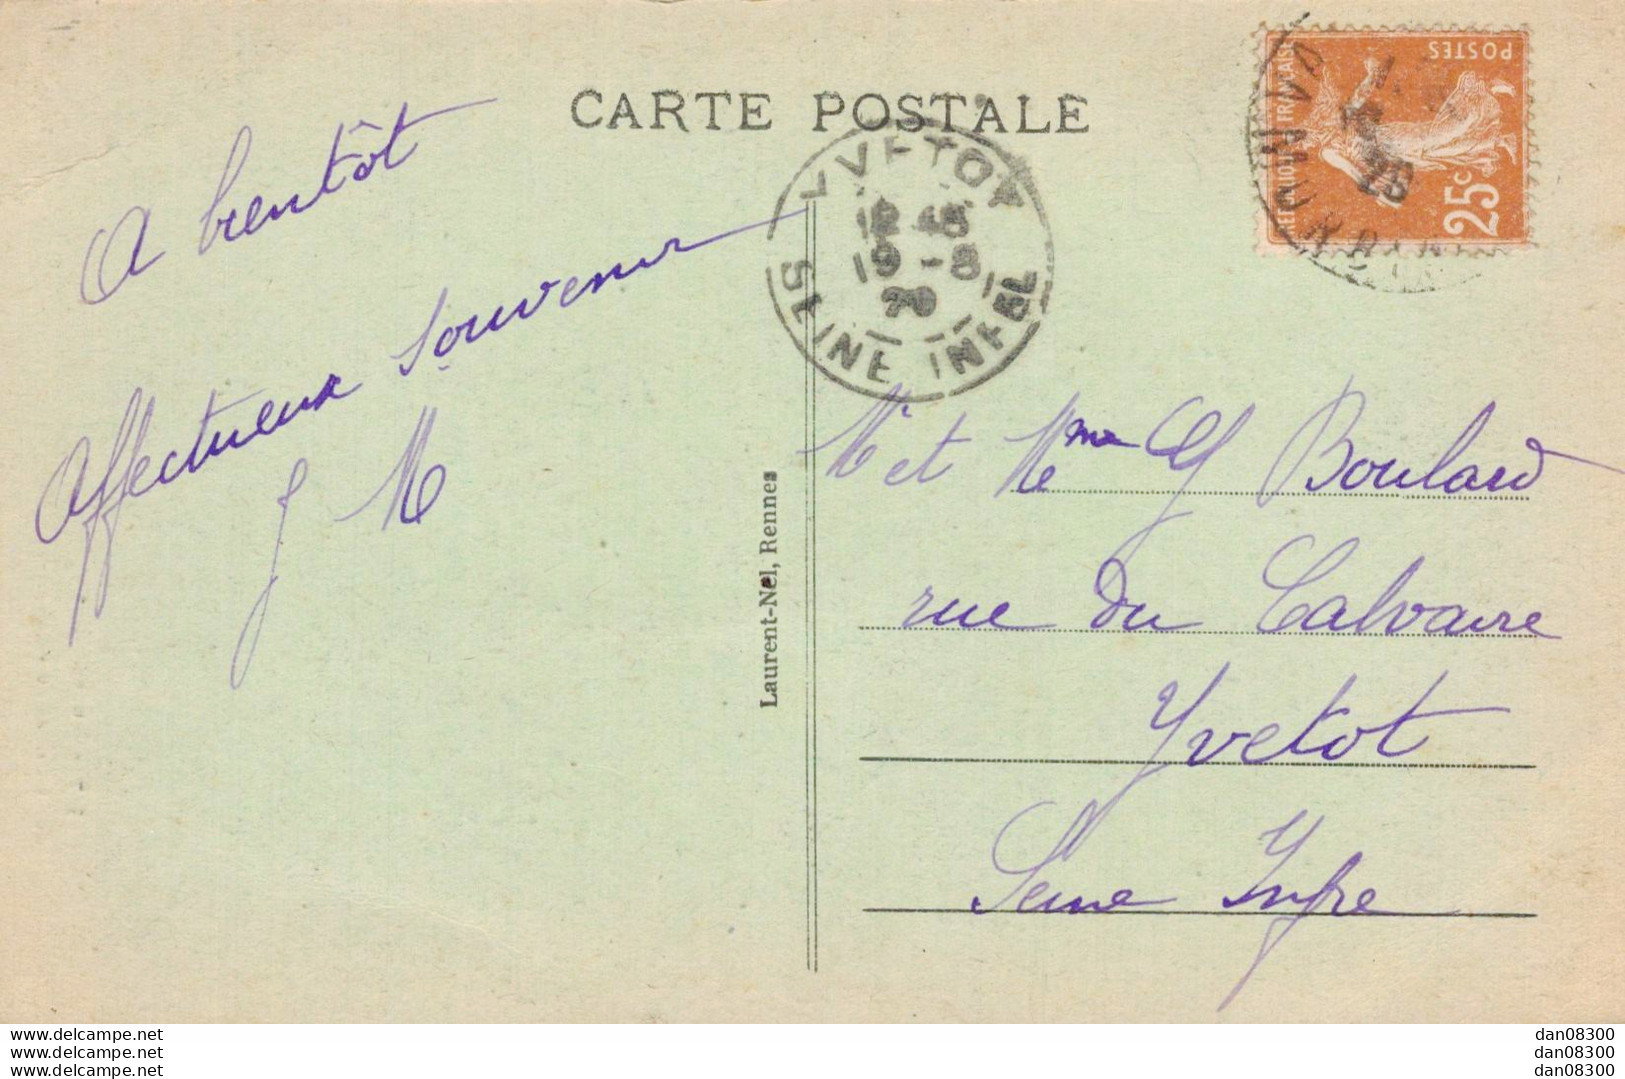 CARTE POSTALE
A bientôt
Affectueux souvenir
J M
Laurent-Nel, Rennes
YVETOT
19 -8
SEINE INFRE
REPUBLIQUE FRANÇAISE
POSTES
25c
26
Mr et Mme G Boulard
rue du Calvaire
Yvetot
Seine Infre
www.delcampe.net
www.delcampe.net
www.delcampe.net
dan08300
dan08300
dan08300